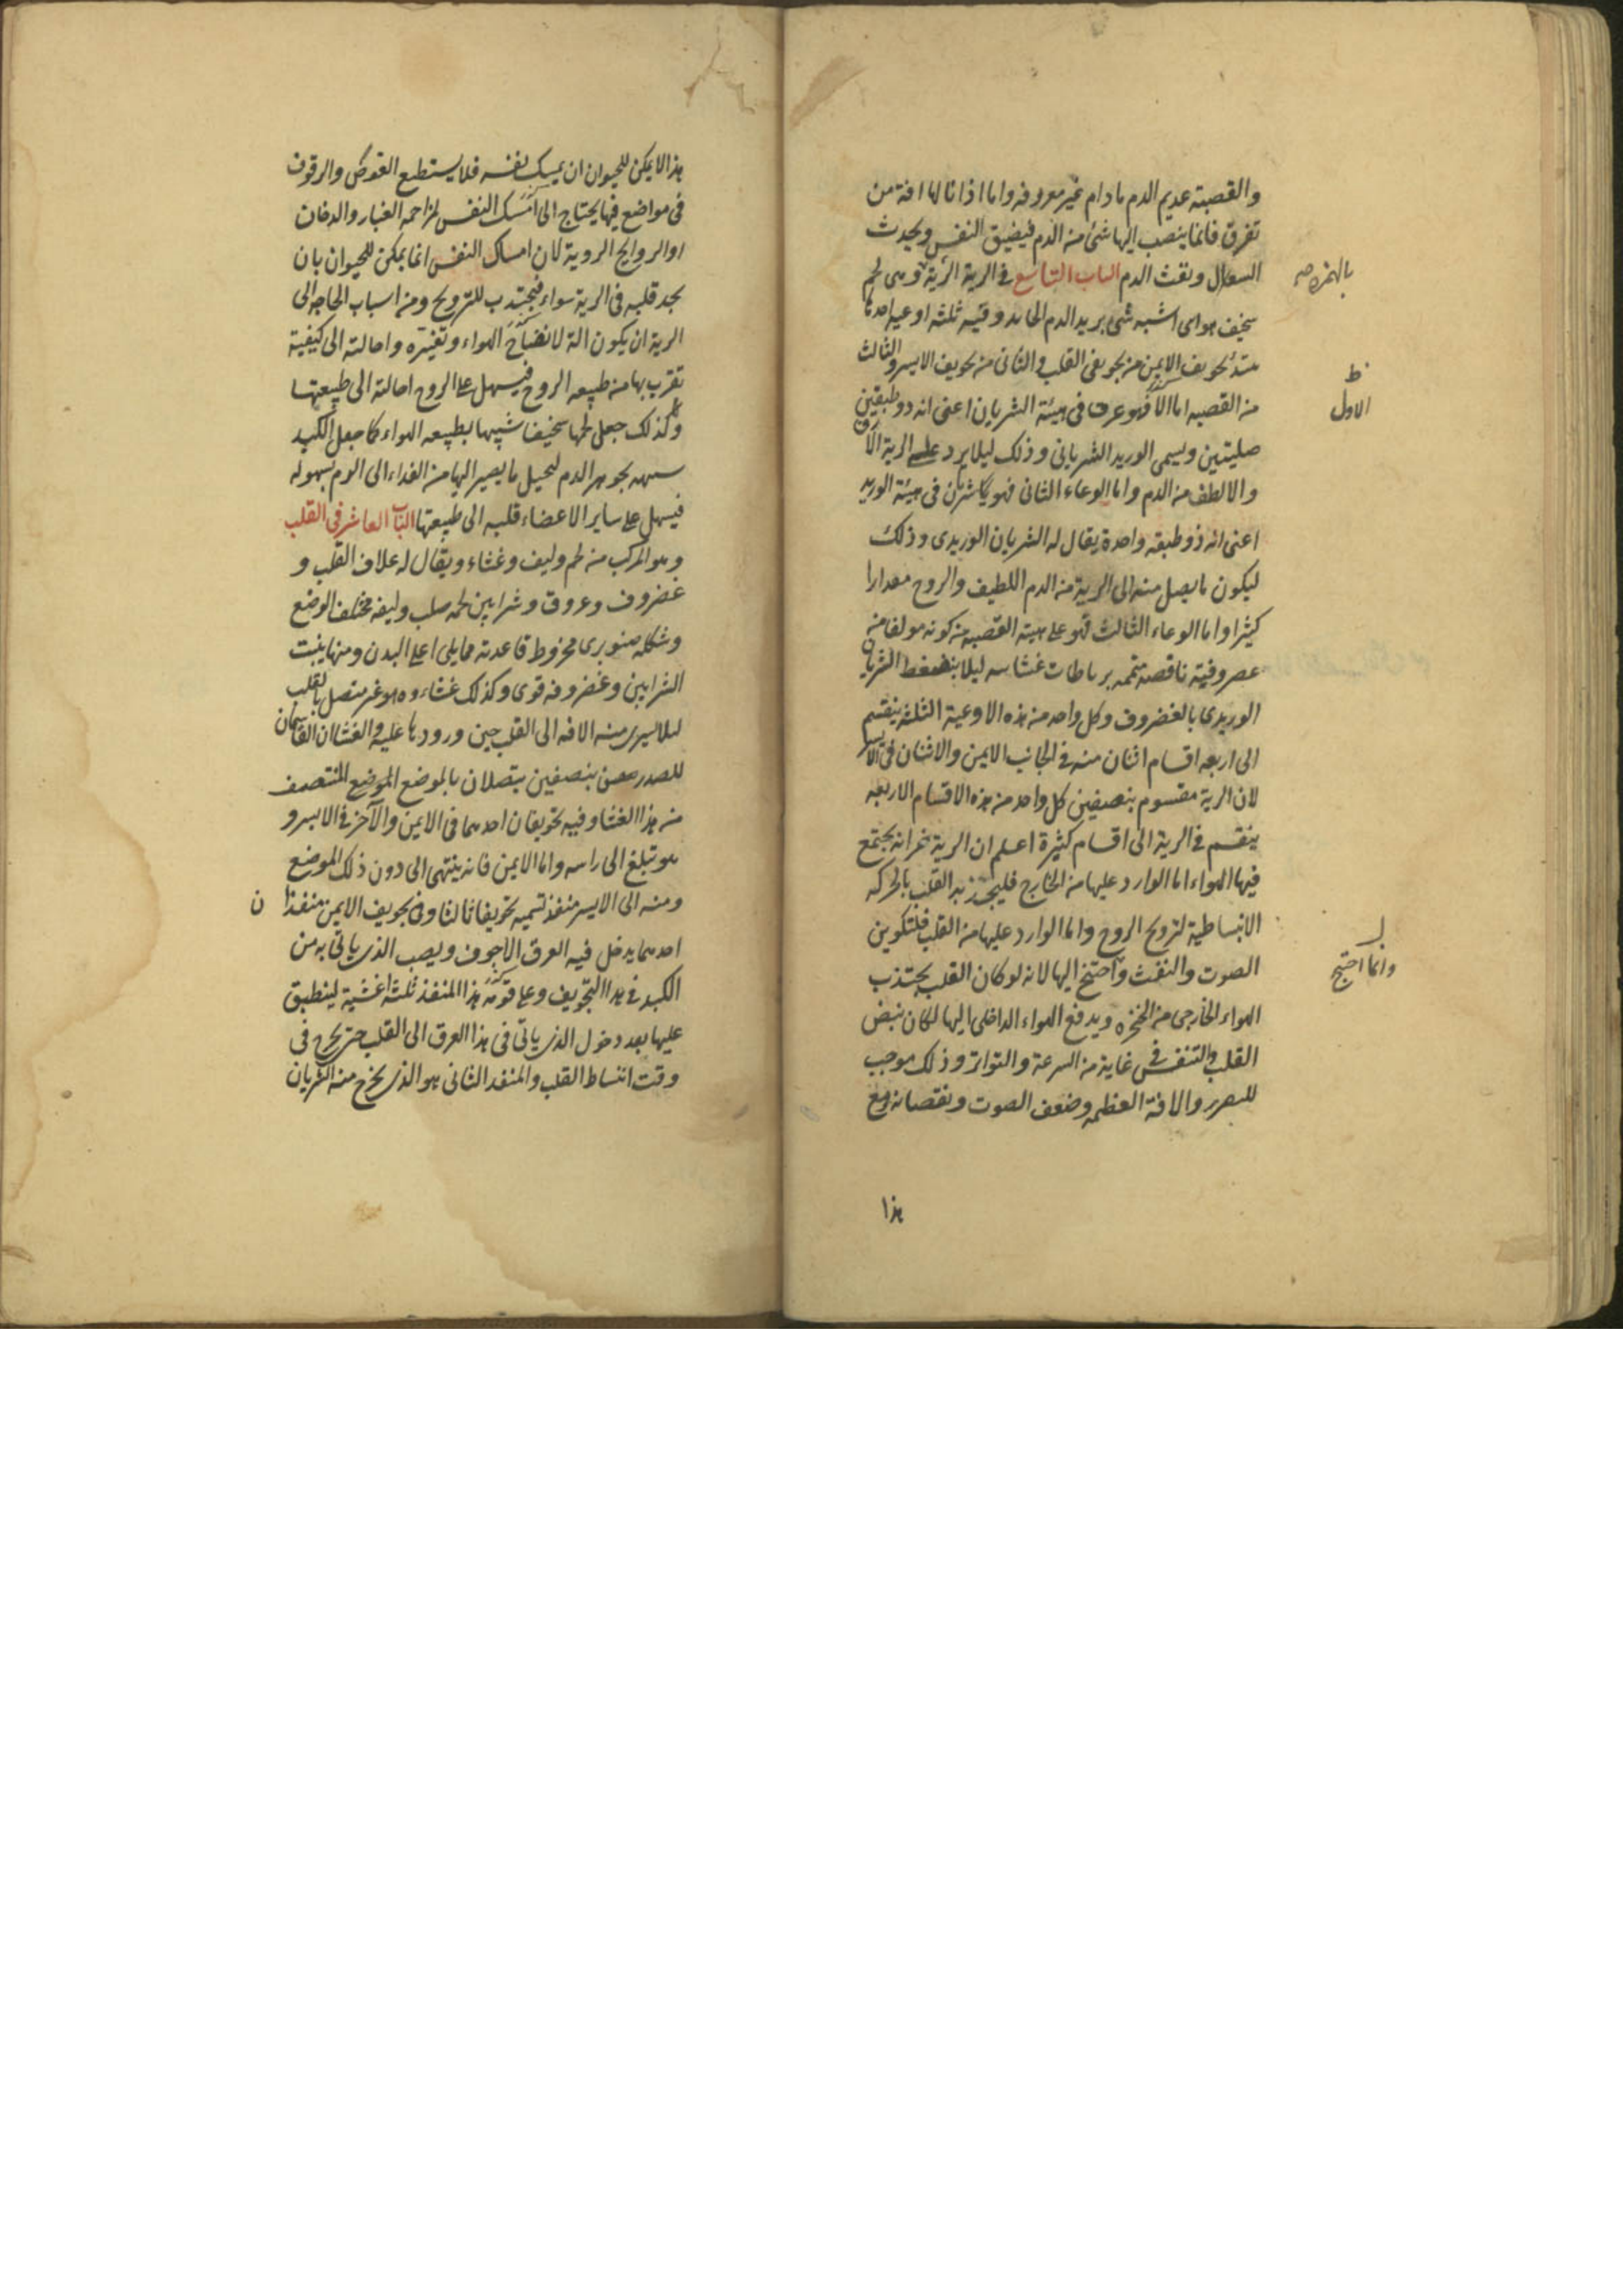 والقصبة عديم الدم مادام غير معروفه واما اذا نالها افة من
تفرق فانما ينصب اليها شئ من الدم فيضيق النفس ويحدث
السعال ونفث الدم الباب التاسع فى الرية الرية وهى لحم
بالهمزه صح
سخيف هواى اشبه شى بزبد الدم الجامد وفيه ثلثه اوعيه احدها
من تجويفى القلب والثانى من تجويف الايسر والثالث
ظ
الاول
من القصبه اما الاول فهو عرق فى هيئة الشريان اعنى انه ذو طبقتين
صلبتين ويسمى الوريد الشريانى وذلك ليلا يرد على الرية الا
والالطف من الدم واما الوعاء الثانى فهو شريان فى هيئة الوريد
اعنى انه ذو طبقه واحدة يقال له الشريان الوريدى وذلك
ليكون ما يصل منه الى الرية من الدم اللطيف والروح مقدارا
كثيرا واما الوعاء الثالث فهو على هيئة القصبه من كونه مولفا من
غضروفية ناقصة متممه برباطات غشائيه ليلا ينضغط الشريان
الوريدى بالغضروف وكل واحد من هذه الاوعية الثلثه ينقسم
الى اربعه اقسام اثنان منه فى الجانب الايمن والاثنان فى الايسر
لان الرية مقسوم بنصفين كل واحد من هذه الاقسام الاربعه
ينقسم فى الرية الى اقسام كثيرة اعلم ان الرية خزانة يجتمع
فيها الهواء اما الوارد عليها من الخارج فليجذبه القلب بالحركه
الانبساطية لترويح الروح واما الوارد عليها من القلب فلتكوين
الصوت والنفث واحتج اليها لانه لو كان القلب يجتذب
وانما احتيج
الهواء الخارجى من الحنجره ويدفع الهواء الداخلى اليها لكان نبض
القلب والتنفس فى غاية من السرعة والتواتر وذلك موجب
للضرر والافة العظمه وضعف الصوت ونقصانه ومع
هذا
هذا لا يمكن للحيوان ان يمسك نفسه فلا يستطيع الغوص والوقوف
فى مواضع فيها يحتاج الى امساك النفس لمزاحمه الغبار والدخان
او الروايح الردية لان امساك النفس انما يمكن للحيوان بان
يجد قلبه فى الرية هواء فيجتذب للترويح ومن اسباب الحاجه الى
الرية ان يكون الة لانضاج الهواء وتغيره واحالته الى كيفية
تقرب بها من طبيعه الروح فيسهل على الروح احالته الى طبيعتها
وكذلك جعل لحمها سخيفا شبيها بطبيعه الهواء كما جعل الكبد
شبيهه بجوهر الدم ليحيل ما يصير اليها من الغذاء الى الدم بسهوله
فيسهل على ساير الاعضاء قلبه الى طبيعتها الباب العاشر فى القلب
وهو المركب من لحم وليف وغشاء ويقال له غلاف القلب و
غضروف وعروق وشرايين لحمه صلب وليفه مختلف الوضع
وشكله صنوبرى مخروط قاعدته مما يلى اعلى البدن ومنها ينبت
الشرايين وغضروفه قوى وكذلك غشاءه وهو غير متصل بالقلب
ليلا يسرى منه الافه الى القلب حين ورودها عليه والغشاان القاسمان
للصدر بنصفين يتصلان بالموضع الموضع المنتصف
من هذا الغشا وفيه تجويفان احدهما فى الايمن والآخر فى الايسر و
هو تبلغ الى راسه واما الايمن فانه ينتهى الى دون ذلك الموضع
ومنه الى الايسر منفذ تسميه تجويفا ثالثا وفى تجويف الايمن منفذا
ن
احدهما يدخل فيه العرق الاجوف ويصب الذى ياتى به من
الكبد فى هذا التجويف وعلى فوهة هذا المنفذ ثلثه اغشية لينطبق
عليها بعد دخول الذى ياتى فى هذا العرق الى القلب حتى يخرج فى
وقت انبساط القلب والمنفذ الثانى هو الذى يخرج منه الشريان